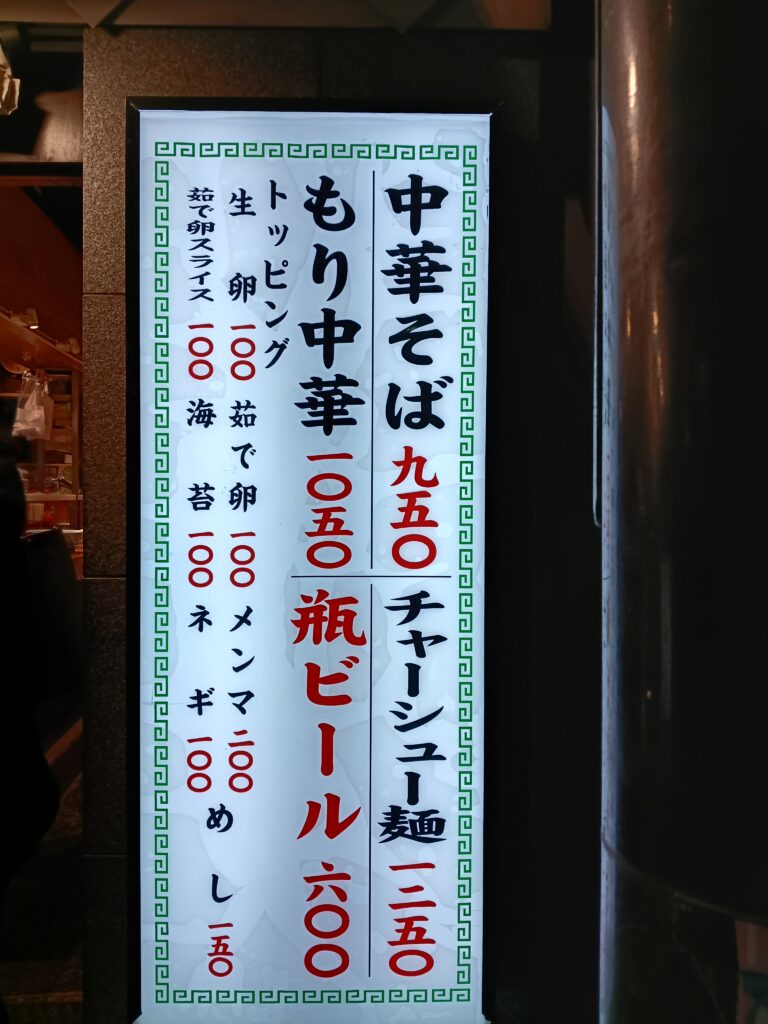 中華そば 九五〇
チャーシュー麺 一二五〇
もり中華 一〇五〇
瓶ビール 六〇〇
トッピング
生卵 一〇〇 茹で卵 一〇〇 メンマ 二〇〇
茹で卵スライス 一〇〇 海苔 一〇〇 ネギ 一〇〇
めし 一五〇